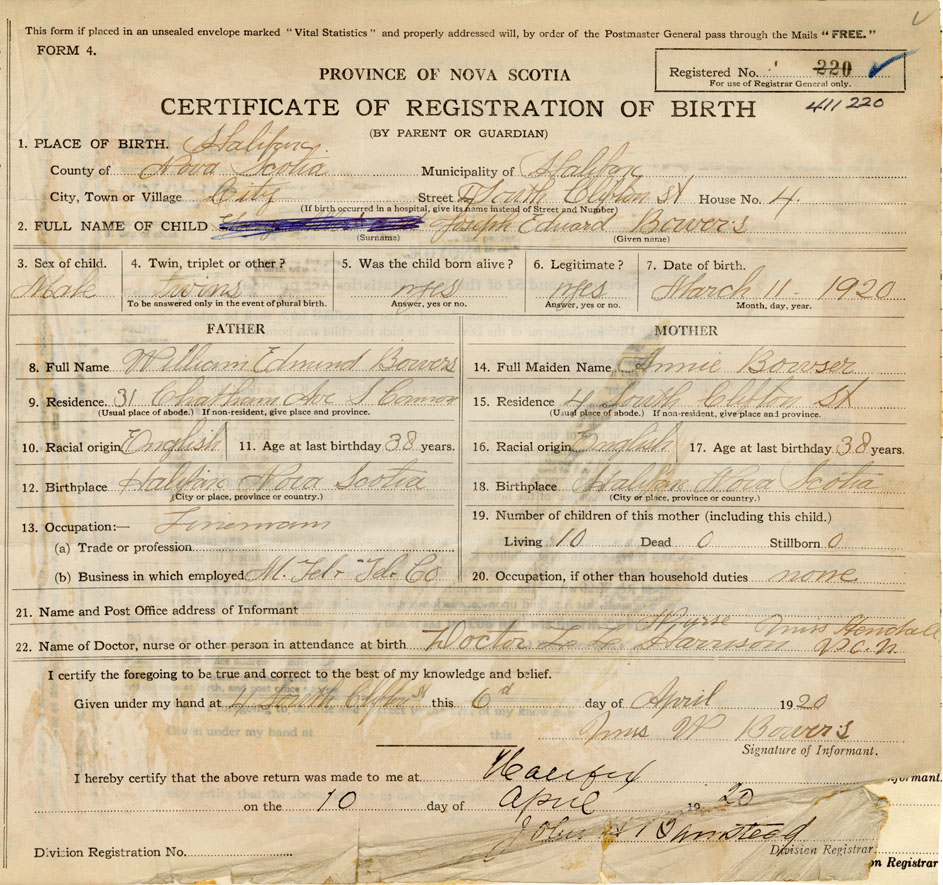 This form if placed in an unsealed envelope marked "Vital Statistics" and properly addressed will, by order of the Postmaster General pass through the Mails "FREE."
FORM 4.
PROVINCE OF NOVA SCOTIA
Registered No. 220
For use of Registrar General only.
CERTIFICATE OF REGISTRATION OF BIRTH 411 220
(BY PARENT OR GUARDIAN)
1. PLACE OF BIRTH. Halifax
County of Nova Scotia Municipality of Halifax
City, Town or Village City Street South Clifton St House No. 4.
(If birth occurred in a hospital, give its name instead of Street and Number)
2. FULL NAME OF CHILD Joseph Edward Bowers
(Surname) (Given name)
3. Sex of child. 4. Twin, triplet or other? 5. Was the child born alive? 6. Legitimate? 7. Date of birth.
Male Twins yes yes March 11. 1920
To be answered only in the event of plural birth. Answer, yes or no. Answer, yes or no. Month, day, year.
FATHER MOTHER
8. Full Name William Edmund Bowers 14. Full Maiden Name Annie Bowser
9. Residence. 31 Chatham 15. Residence 4 South Clifton St
(Usual place of abode.) If non-resident, give place and province. (Usual place of abode.) If non-resident, give place and province.
10. Racial origin English 11. Age at last birthday 38 years. 16. Racial origin English 17. Age at last birthday 38 years.
12. Birthplace Halifax Nova Scotia 18. Birthplace Halifax Nova Scotia
(City or place, province or country.) (City or place, province or country.)
13. Occupation:— Linemam 19. Number of children of this mother (including this child.)
(a) Trade or profession Living 10 Dead 0 Stillborn 0
(b) Business in which employed M. Tel. Tel. Co 20. Occupation, if other than household duties none
21. Name and Post Office address of Informant
22. Name of Doctor, nurse or other person in attendance at birth Doctor Harrison Nurse Miss Kendall V.O.N
I certify the foregoing to be true and correct to the best of my knowledge and belief.
Given under my hand at 4 South Clifton St this 6 day of April 1920
Mrs W Bowers
Signature of Informant.
I hereby certify that the above return was made to me at Halifax
on the 10 day of April 1920
John H Barnstead
Division Registration No. Division Registrar
on Registrar